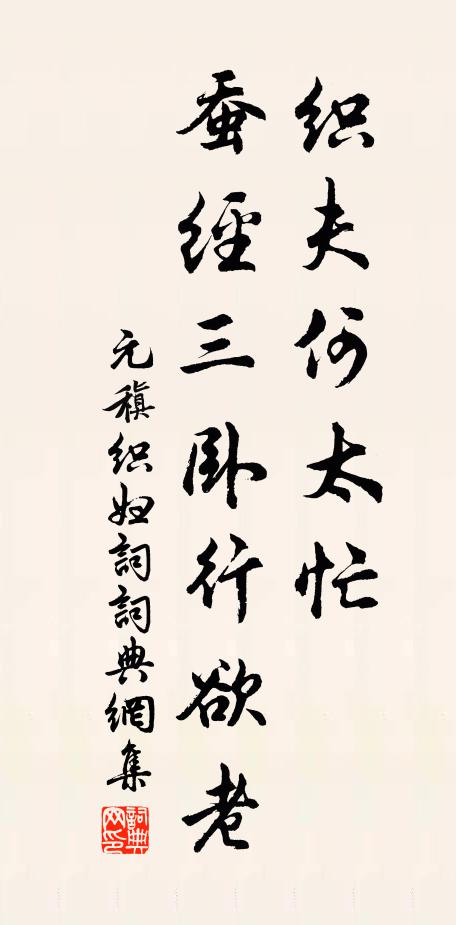 织夫何太忙
蚕经三卧行欲老
元稹织妇詞詞典網集
詞典网印